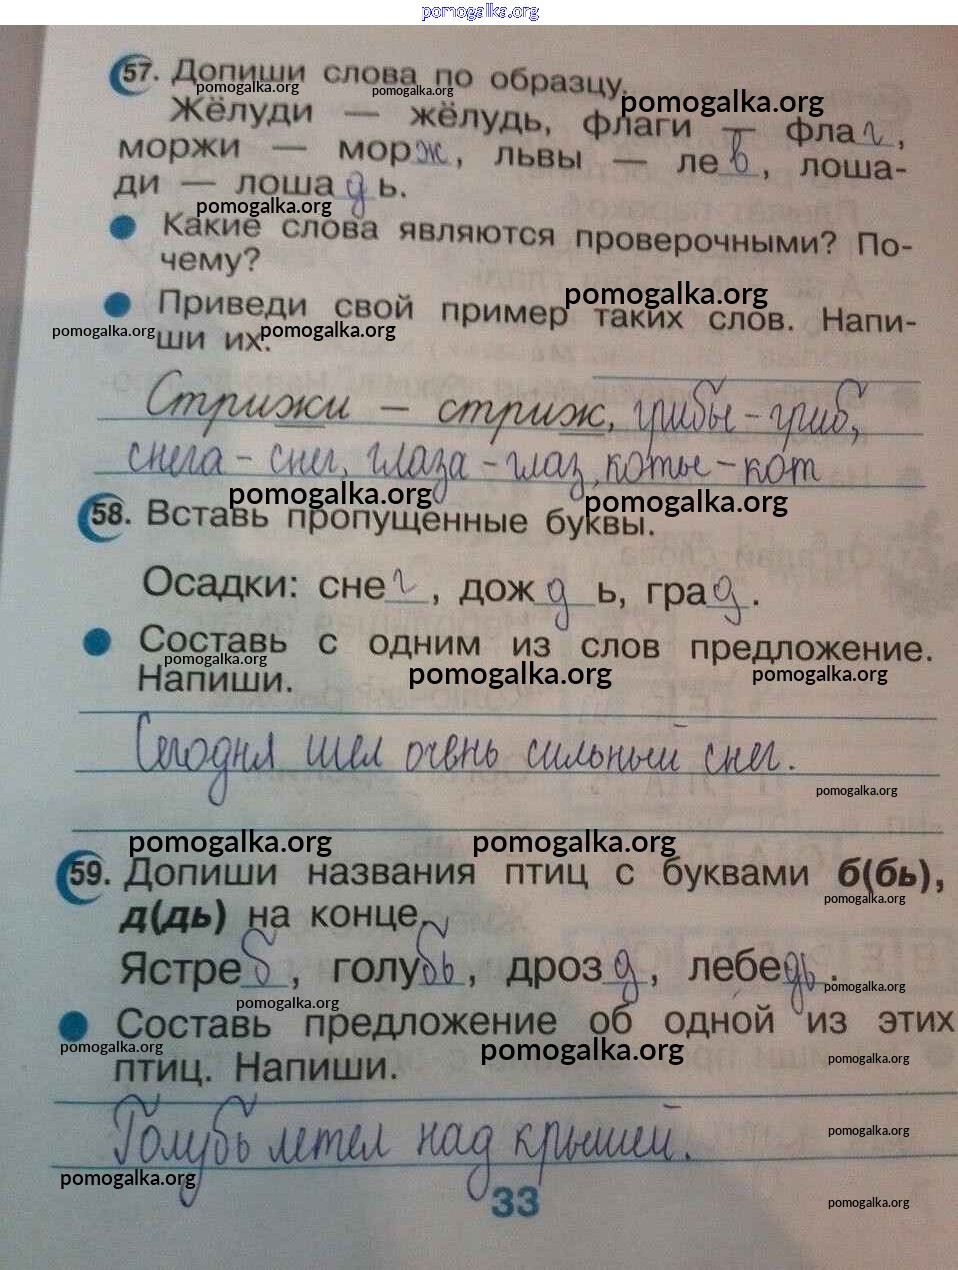 pomogalka.org
57. Допиши слова по образцу.
pomogalka.org pomogalka.org pomogalka.org
Жёлуди — жёлудь, флаги — флаг,
моржи — морж, львы — лев, лоша-
ди — лошадь.
pomogalka.org
Какие слова являются проверочными? По-
чему?
pomogalka.org
Приведи свой пример таких слов. Напи-
pomogalka.org pomogalka.org
ши их.
Стрижи — стриж, грибы - гриб,
снега - снег, глаза - глаз, коты - кот
pomogalka.org pomogalka.org
58. Вставь пропущенные буквы.
Осадки: снег, дождь, град.
Составь с одним из слов предложение.
pomogalka.org pomogalka.org pomogalka.org
Напиши.
Сегодня шел очень сильный снег.
pomogalka.org
pomogalka.org pomogalka.org
59. Допиши названия птиц с буквами б(бь),
pomogalka.org
д(дь) на конце.
Ястреб, голубь, дрозд, лебедь.
pomogalka.org
pomogalka.org
Составь предложение об одной из этих
pomogalka.org pomogalka.org pomogalka.org
птиц. Напиши.
Голубь летел над крышей.
pomogalka.org
pomogalka.org
33
pomogalka.org